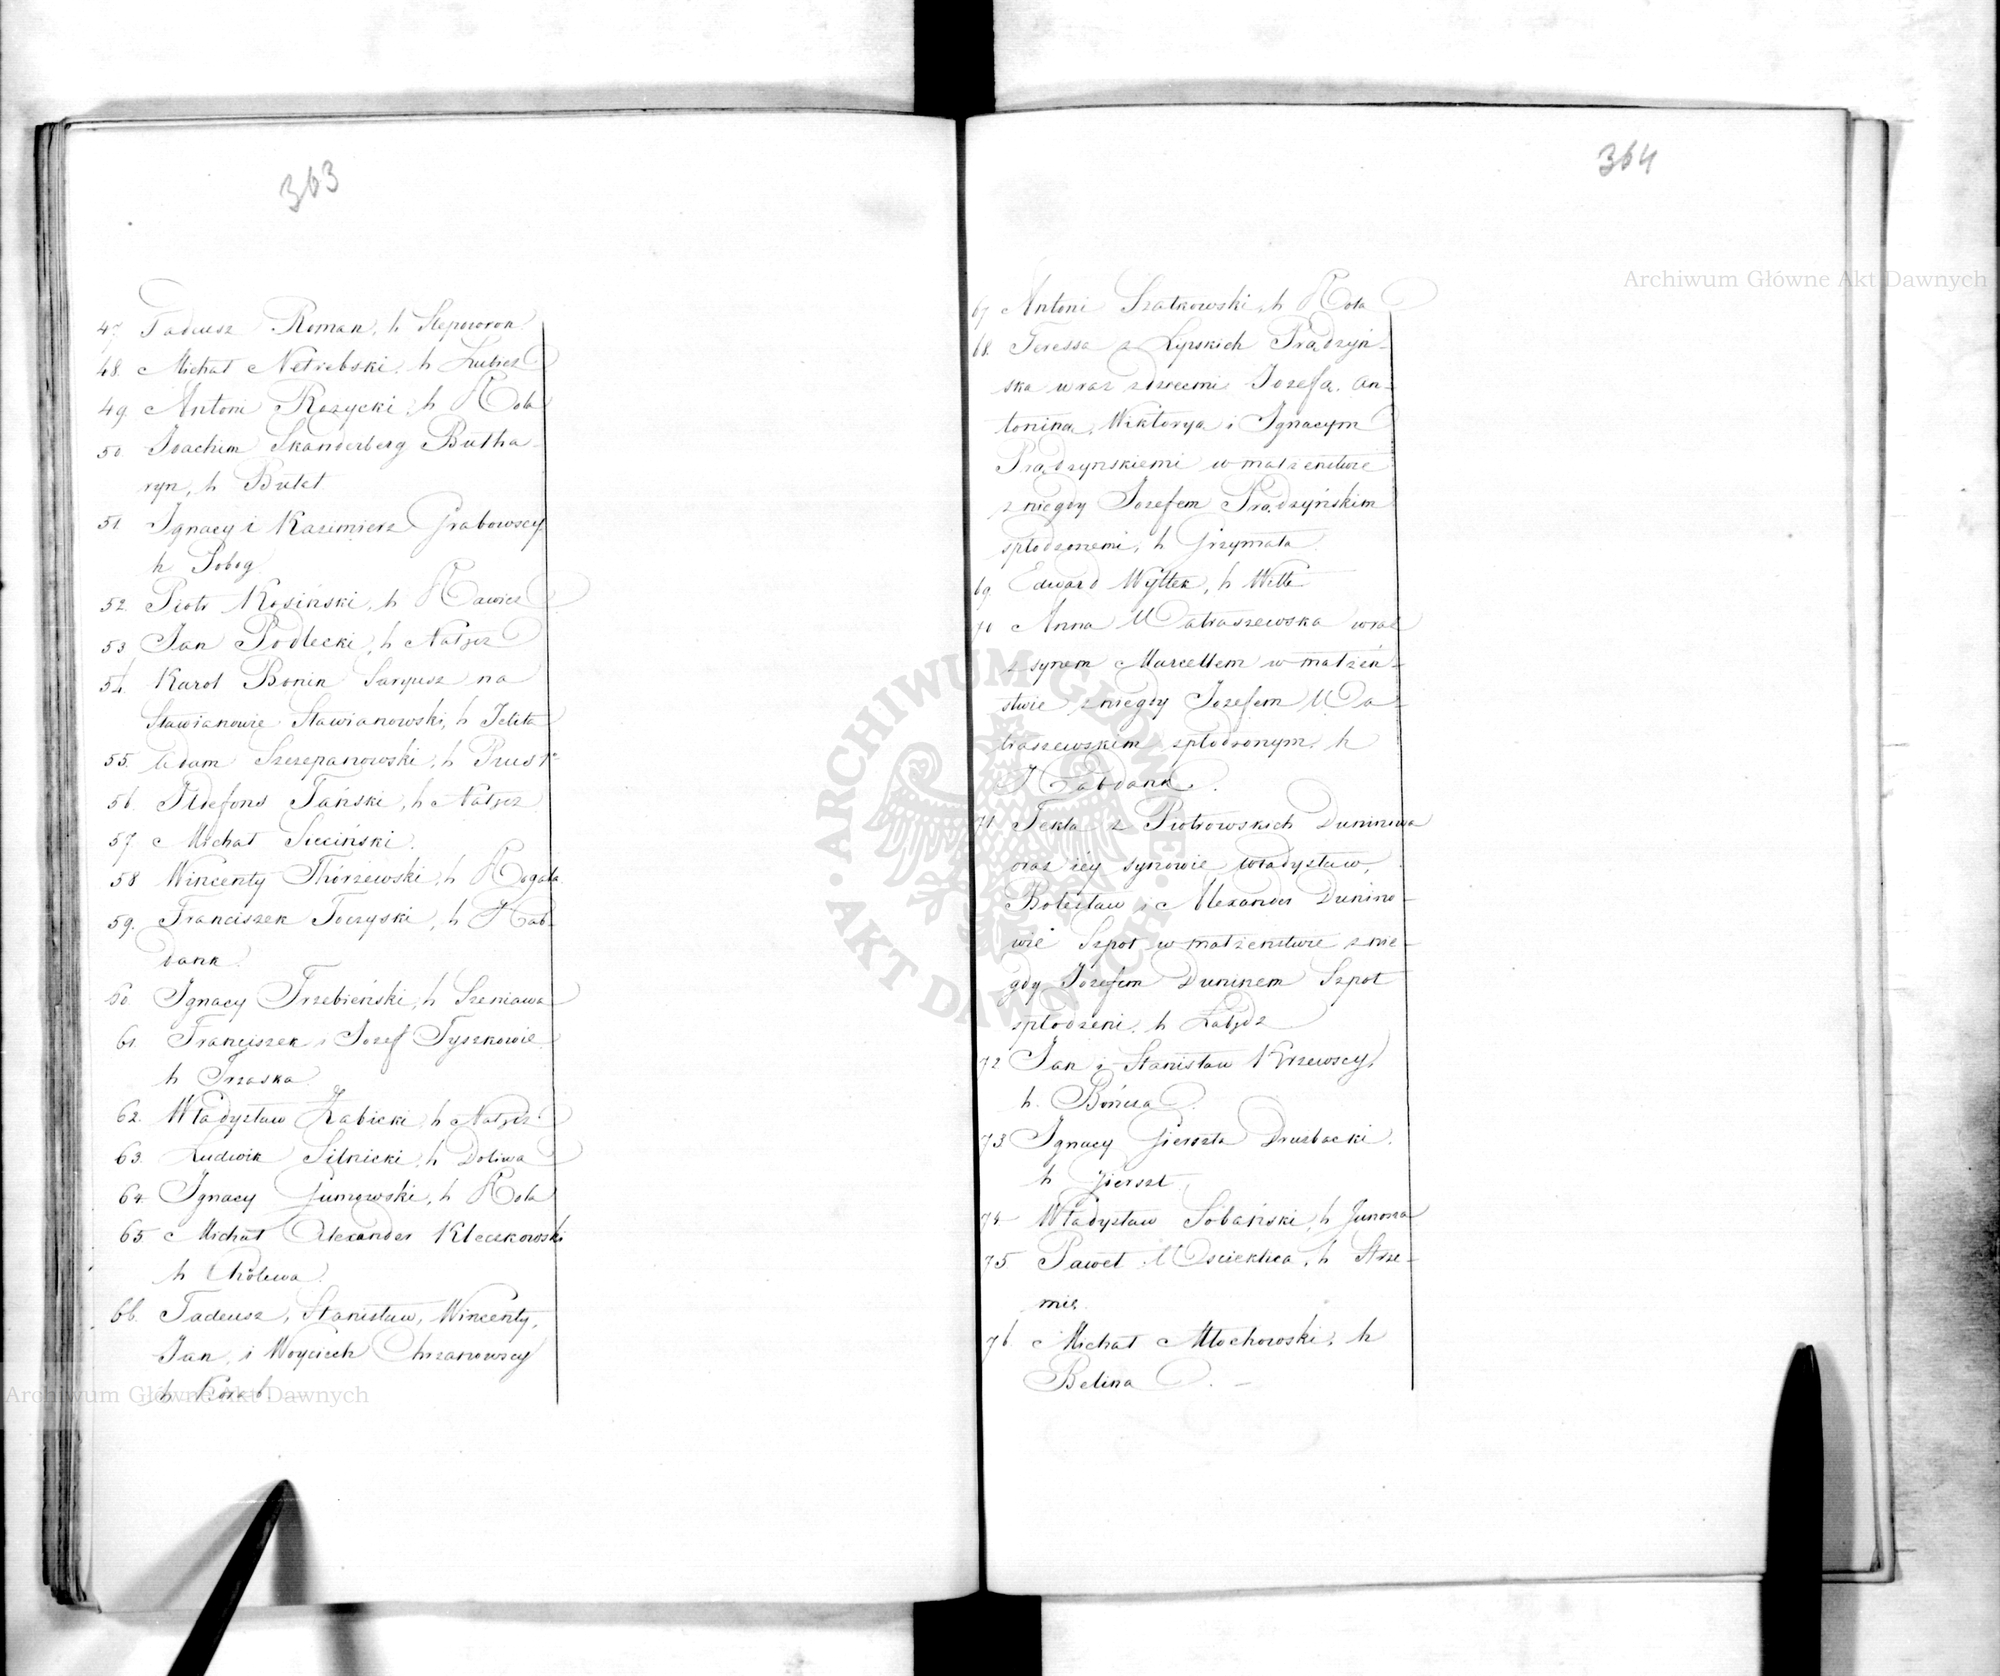 363
47. Tadeusz Roman, h Slepowron.
48. Michał Netrebski, h Lubicz
49. Antoni Rozycki, h Rola
50. Joachim Skanderberg Butha-
ryn, h Bukat.
51. Ignacy i Kazimierz Grabowscy
h Pobog.
52. Piotr Kosiński, h Rawicz
53. Jan Podlecki, h Nałęcz
54. Karol Bonin Saryusz na
Sławianowie Sławianowski, h Jelita
55. Adam Szczepanowski, h Prus 1º
56. Ildefons Tański, h Nałęcz
57. Michał Sieciński.
58 Wincenty Thórzewski, h Rogala.
59. Franciszek Toczyski, h Hab-
dank.
60. Ignacy Trzebieński, h Szeniawa
61. Franciszek i Jozef Tyszkowie
h Trzaska.
62. Władysław Żabicki, h Nałęcz
63. Ludwik Silnicki, h Doliwa
64. Ignacy Gumowski, h Rola
65 Michał Alexander Kleczkowski
h Cholewa.
66. Tadeusz, Stanisław, Wincenty,
Jan, i Woyciech Chrzanowscy
h Korab
364
67 Antoni Szatkowski, h Rola
68. Teressa z Lipskich Prądzyń-
ska wraz z dziećmi Jozefą, An-
toniną, Wiktoryą i Ignacym
Prądzynskiemi w małżeństwie
z niegdy Jozefem Prądzyńskim
spłodzonemi, h Grzymała.
69. Edward Wyttek, h Witte
70 Anna Matraszewska wraz
z synem Marcellem w małżeń-
stwie z niegdy Jozefem Ma-
traszewskim spłodzonym, h
Habdank.
71 Tekla z Piotrowskich Duninowa
oraz iey synowie Władysław,
Bolesław i Alexander Dunino-
wie Szpot w małżeństwie z nie-
gdy Jozefem Duninem Szpot
spłodzeni, h Łabędz
72 Jan i Stanisław Krzewscy,
h. Bończa.
73 Ignacy Gierszta Druzbacki.
h Gierszt.
74 Władysław Sobański, h Junosza
75. Paweł Oscieklica, h Strze-
mie.
76 Michał Młochowski, h
Belina. —
Archiwum Główne Akt Dawnych
Archiwum Główne Akt Dawnych
ARCHIWUM GŁÓWNE · AKT DAWNYCH ·